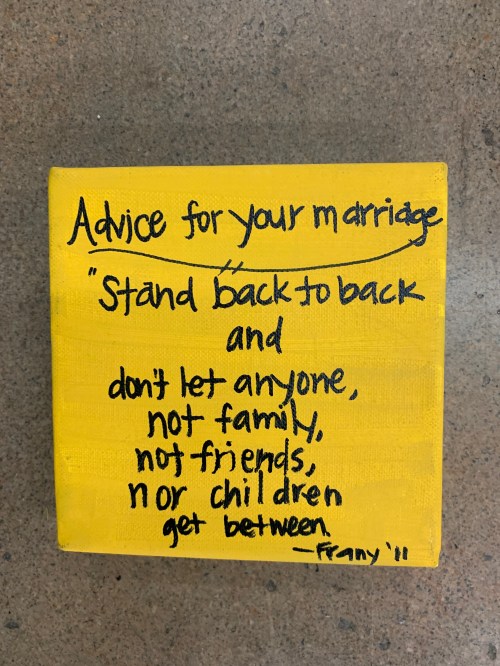 Advice for your marriage
"Stand back to back
and
don't let anyone,
not family,
not friends,
nor children
get between.
-Frany '11